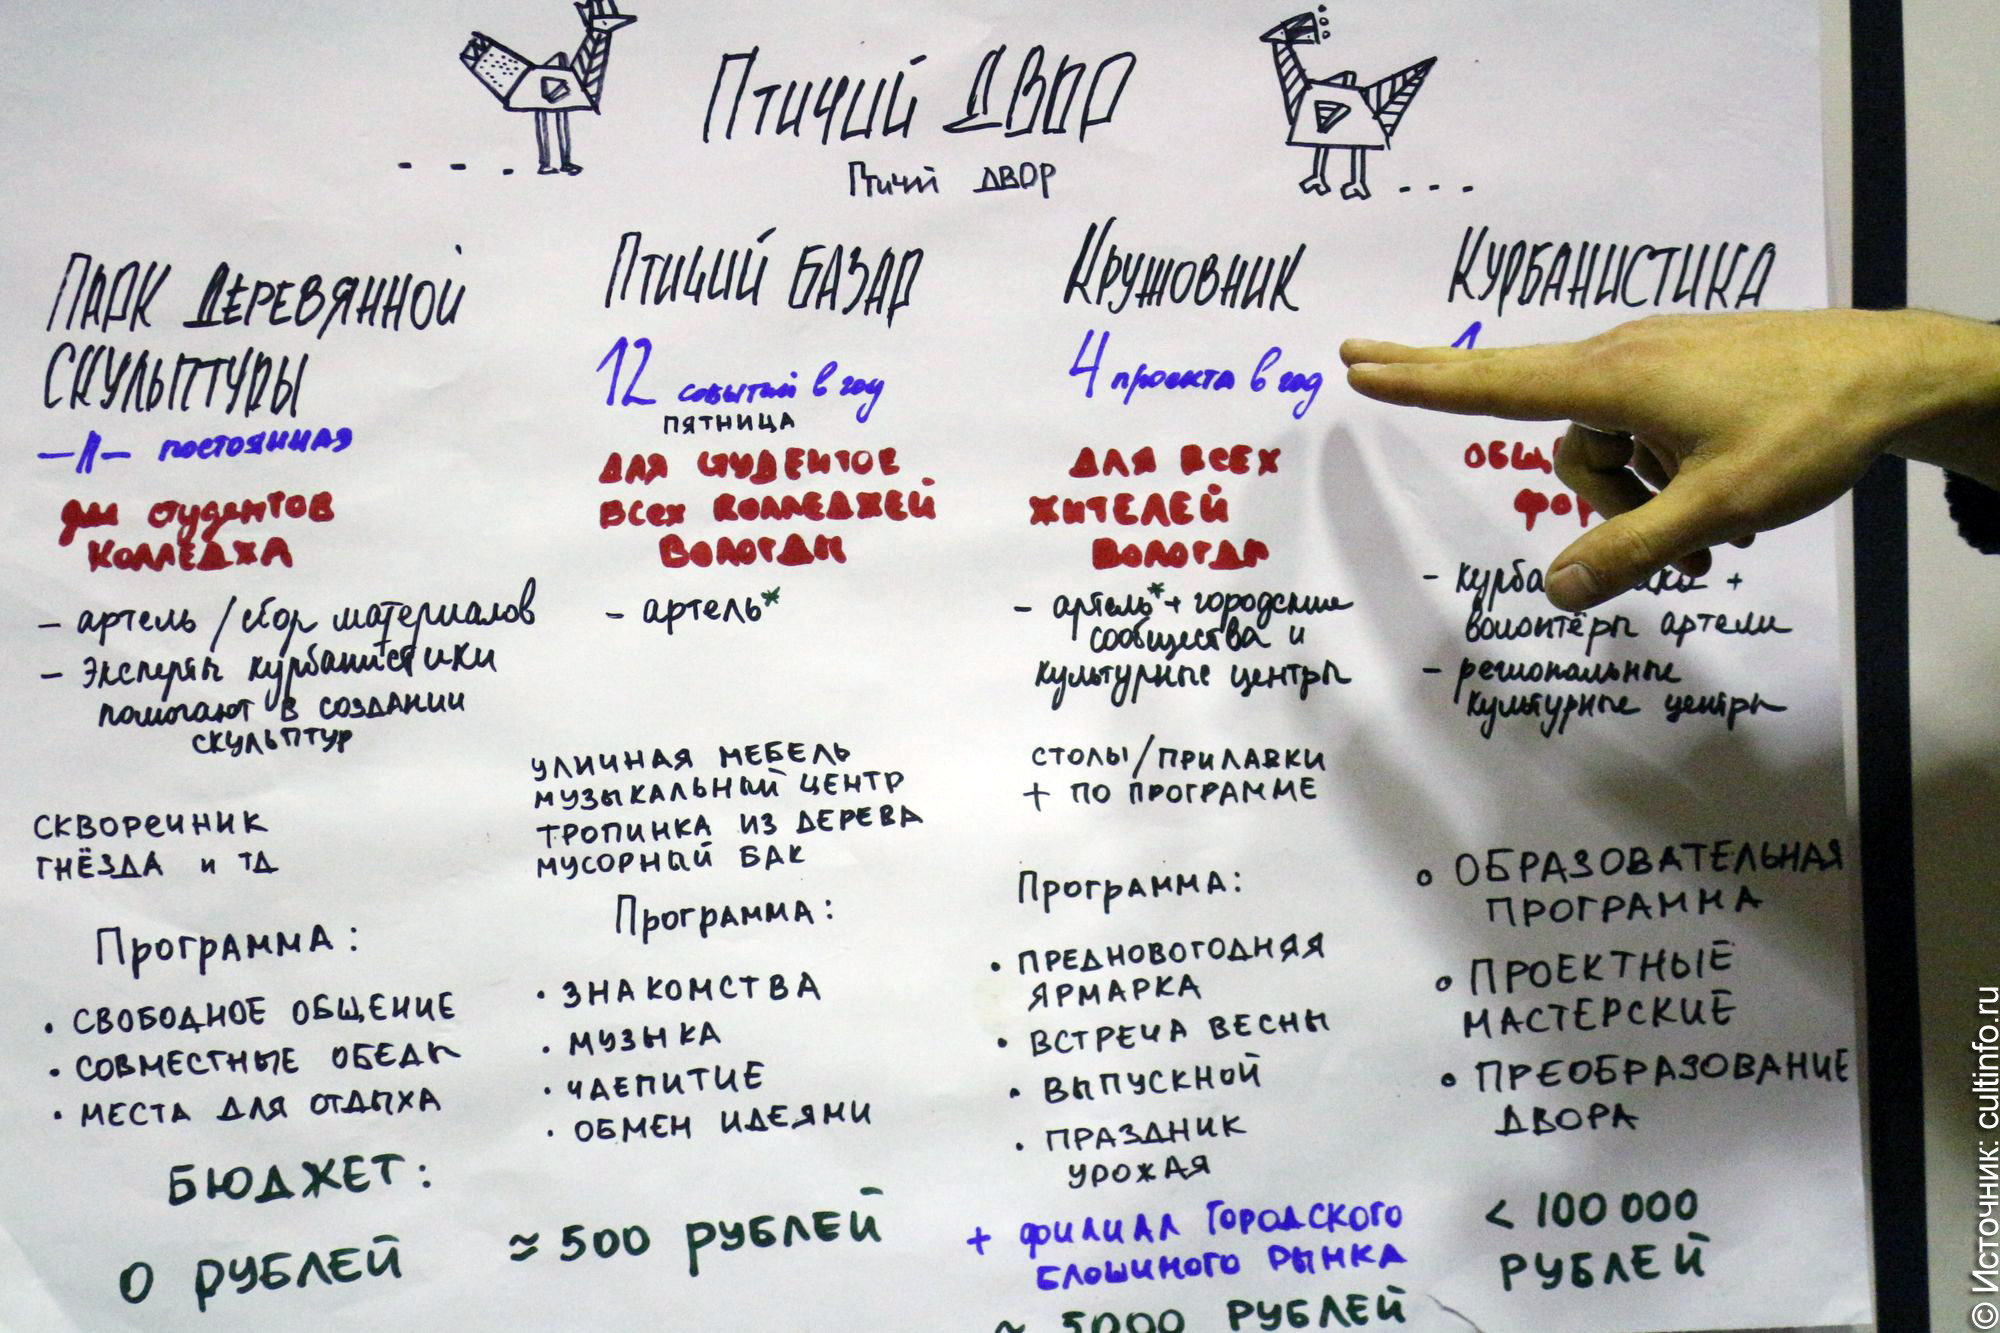 Птичий ДВОР
Птичий ДВОР
ПАРК ДЕРЕВЯННОЙ
СКУЛЬПТУРЫ
постоянная
для студентов
КОЛЛЕДЖА
- артель / сбор материалов
- Эксперты курбанистики
помогают в создании
скульптур
СКВОРЕЧНИК
ГНЁЗДА и ТД
Программа:
• СВОБОДНОЕ ОБЩЕНИЕ
• СОВМЕСТНЫЕ ОБЕДЫ
• МЕСТА ДЛЯ ОТДЫХА
БЮДЖЕТ:
0 РУБЛЕЙ
ПТИЧИЙ БАЗАР
12 событий в году
ПЯТНИЦА
ДЛЯ СТУДЕНТОВ
ВСЕХ КОЛЛЕДЖЕЙ
ВОЛОГДЫ
- артель*
УЛИЧНАЯ МЕБЕЛЬ
МУЗЫКАЛЬНЫЙ ЦЕНТР
ТРОПИНКА ИЗ ДЕРЕВА
МУСОРНЫЙ БАК
Программа:
• ЗНАКОМСТВА
• МУЗЫКА
• ЧАЕПИТИЕ
• ОБМЕН ИДЕЯМИ
≈ 500 РУБЛЕЙ
КРУЖОВНИК
4 проекта в год
ДЛЯ ВСЕХ
ЖИТЕЛЕЙ
ВОЛОГДЫ
- артель* + городские
сообщества и
культурные центры
СТОЛЫ/ПРИЛАВКИ
+ ПО ПРОГРАММЕ
Программа:
• ПРЕДНОВОГОДНЯЯ
ЯРМАРКА
• ВСТРЕЧА ВЕСНЫ
• ВЫПУСКНОЙ
• ПРАЗДНИК
УРОЖАЯ
+ ФИЛИАЛ ГОРОДСКОГО
БЛОШИНОГО РЫНКА
≈ 5000 РУБЛЕЙ
КУРБАНИСТИКА
1
+
волонтёры артели
- региональные
культурные центры
• ОБРАЗОВАТЕЛЬНАЯ
ПРОГРАММА
• ПРОЕКТНЫЕ
МАСТЕРСКИЕ
• ПРЕОБРАЗОВАНИЕ
ДВОРА
< 100 000
РУБЛЕЙ
© Источник: cultinfo.ru